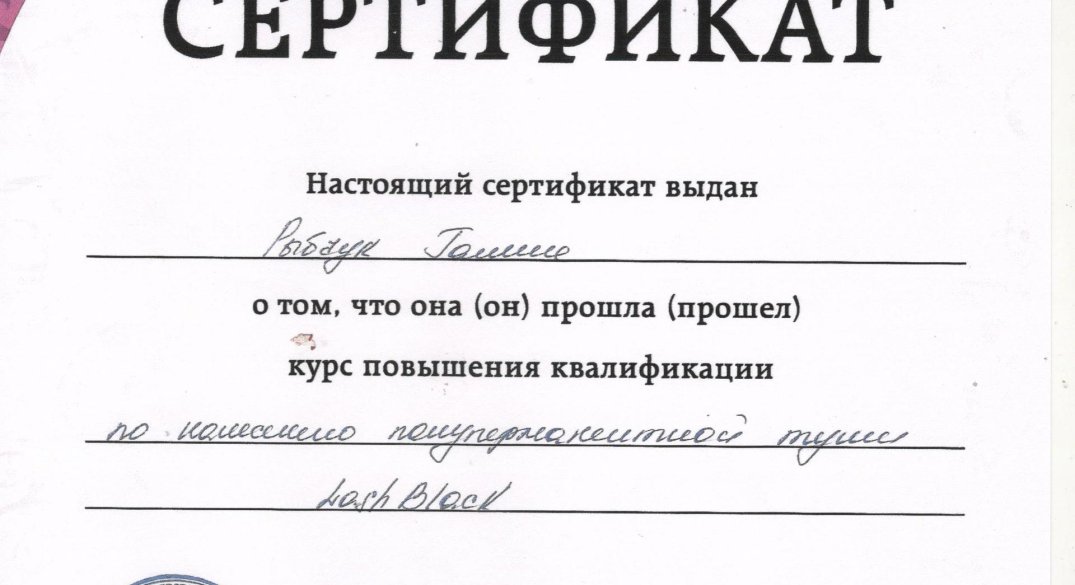 СЕРТИФИКАТ
Настоящий сертификат выдан
Рыбчук Галине
о том, что она (он) прошла (прошел)
курс повышения квалификации
по нанесению полуперманентной туши
Lash Black